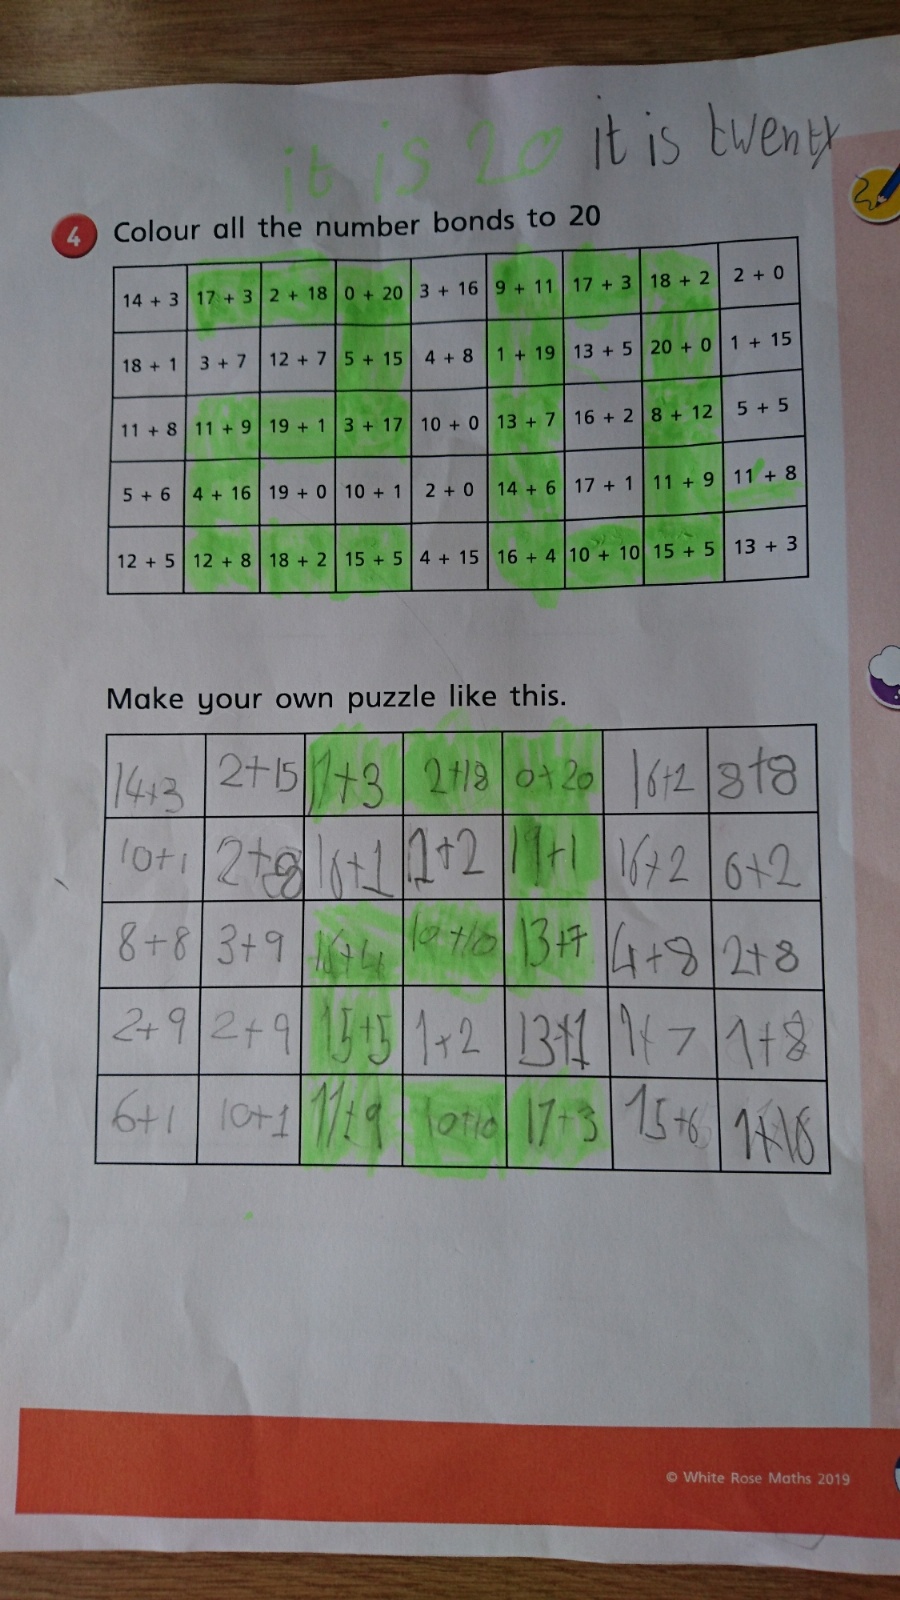 it is 20 it is twenty
4 Colour all the number bonds to 20
14 + 3 17 + 3 2 + 18 0 + 20 3 + 16 9 + 11 17 + 3 18 + 2 2 + 0
18 + 1 3 + 7 12 + 7 5 + 15 4 + 8 1 + 19 13 + 5 20 + 0 1 + 15
11 + 8 11 + 9 19 + 1 3 + 17 10 + 0 13 + 7 16 + 2 8 + 12 5 + 5
5 + 6 4 + 16 19 + 0 10 + 1 2 + 0 14 + 6 17 + 1 11 + 9 11 + 8
12 + 5 12 + 8 18 + 2 15 + 5 4 + 15 16 + 4 10 + 10 15 + 5 13 + 3
Make your own puzzle like this.
14+3 2+15 17+3 2+18 0+20 16+2 8+8
10+1 2+8 16+1 1+2 19+1 16+2 6+2
8+8 3+9 16+4 10+10 13+7 4+8 2+8
2+9 2+9 15+5 1+2 13+1 1+7 1+8
6+1 10+1 11+9 10+10 17+3 15+6
© White Rose Maths 2019